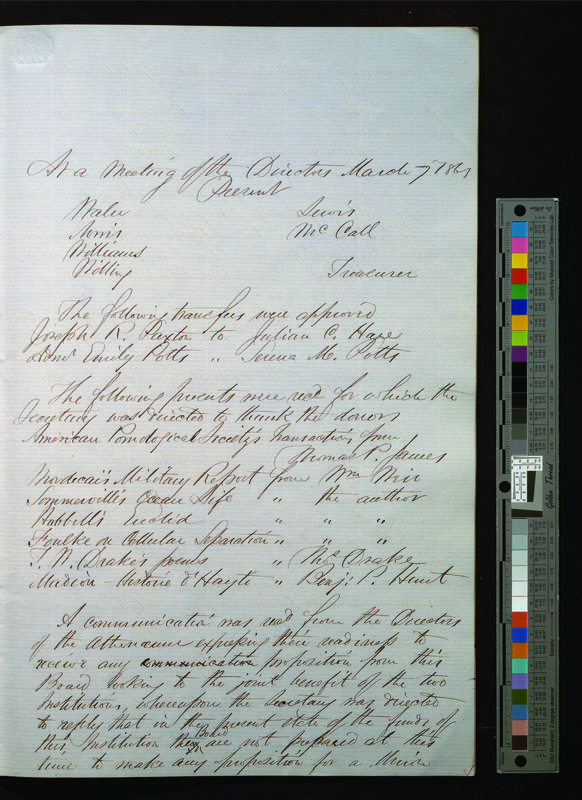 At a Meeting of the Directors March 7 1861
Present
Waln Lewis
Norris McCall
Williams
Willing Treasurer
The following transfers were approved
Joseph R. Paxton to Julian C. Hare
Emily Potts " M. Potts
The following presents were recd for which the
Secretary was directed to thank the donors
American Pomological Society's Transactions from
Thomas P. James
Mordecai's Military Report from Wm Weir
Sommerville's Ocean Life " the author
Hubbell's Euclid " " "
Foulke on Cellular Separation " " "
Drake's poems " Drake
Madiou - Histoire d'Hayti " Benj. P. Hunt
A communication was recd from the Directors
of the Athenaeum expressing their readiness to
receive any communication proposition from this
Board looking to the joint benefit of the two
Institutions, whereupon the Secretary was directed
to reply that in the present state of the funds of
this Institution the Board are not prepared at this
time to make any proposition for a Union